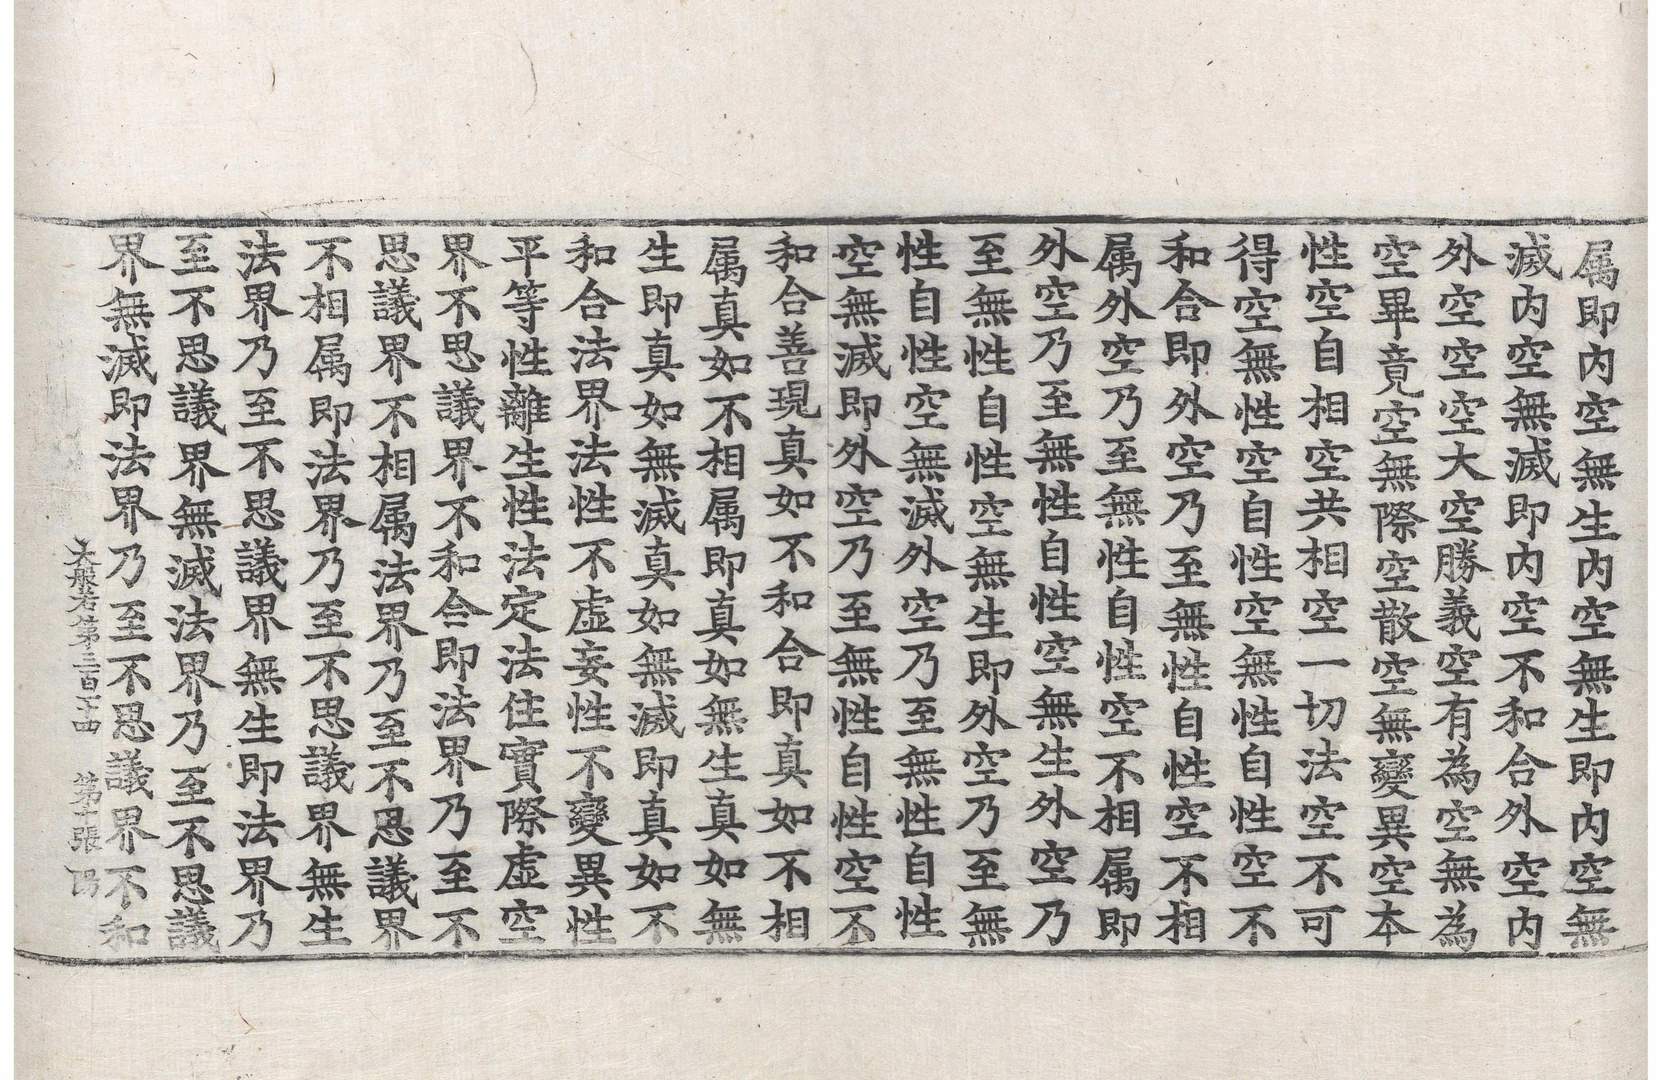 属即内空無生内空無生即内空無
滅内空無滅即内空不和合外空内
外空空空大空勝義空有為空無為
空畢竟空無際空散空無變異空本
性空自相空共相空一切法空不可
得空無性空自性空無性自性空不
和合即外空乃至無性自性空不相
属外空乃至無性自性空不相属即
外空乃至無性自性空無生外空乃
至無性自性空無生即外空乃至無
性自性空無滅外空乃至無性自性
空無滅即外空乃至無性自性空不
和合善現真如不和合即真如不相
属真如不相属即真如無生真如無
生即真如無滅真如無滅即真如不
和合法界法性不虛妄性不變異性
平等性離生性法定法住實際虛空
界不思議界不和合即法界乃至不
思議界不相属法界乃至不思議界
不相属即法界乃至不思議界無生
法界乃至不思議界無生即法界乃
至不思議界無滅法界乃至不思議
界無滅即法界乃至不思議界不和
大般若第三百 第十張